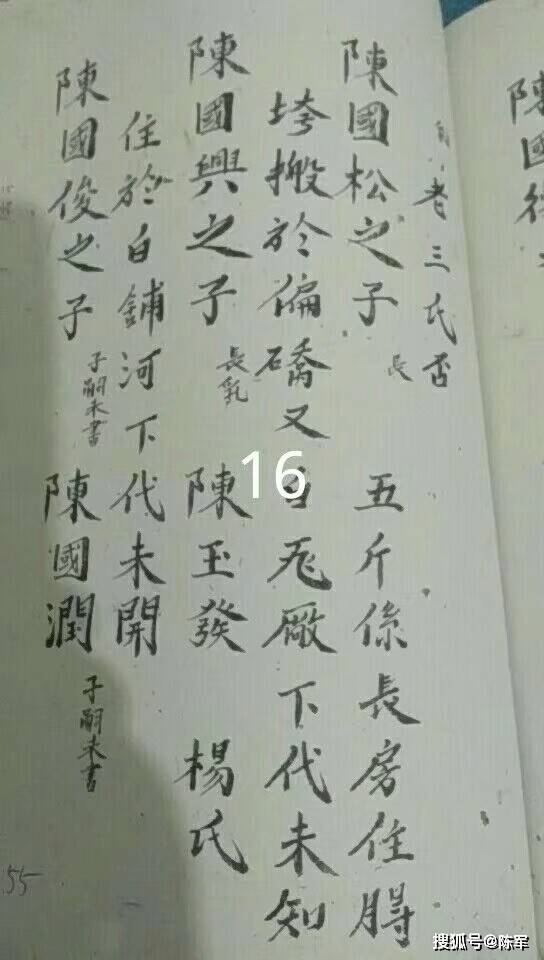 者三氏否
陳國松之子 長 五斤係長房住脚
垮搬於偏礄又 白瓦廠下代未知
陳國興之子 長乳 陳玉發 楊氏
住於白鋪河下代未開
陳國俊之子 子嗣未書 陳國潤 子嗣未書
陳國
16
55
搜狐号@陈军